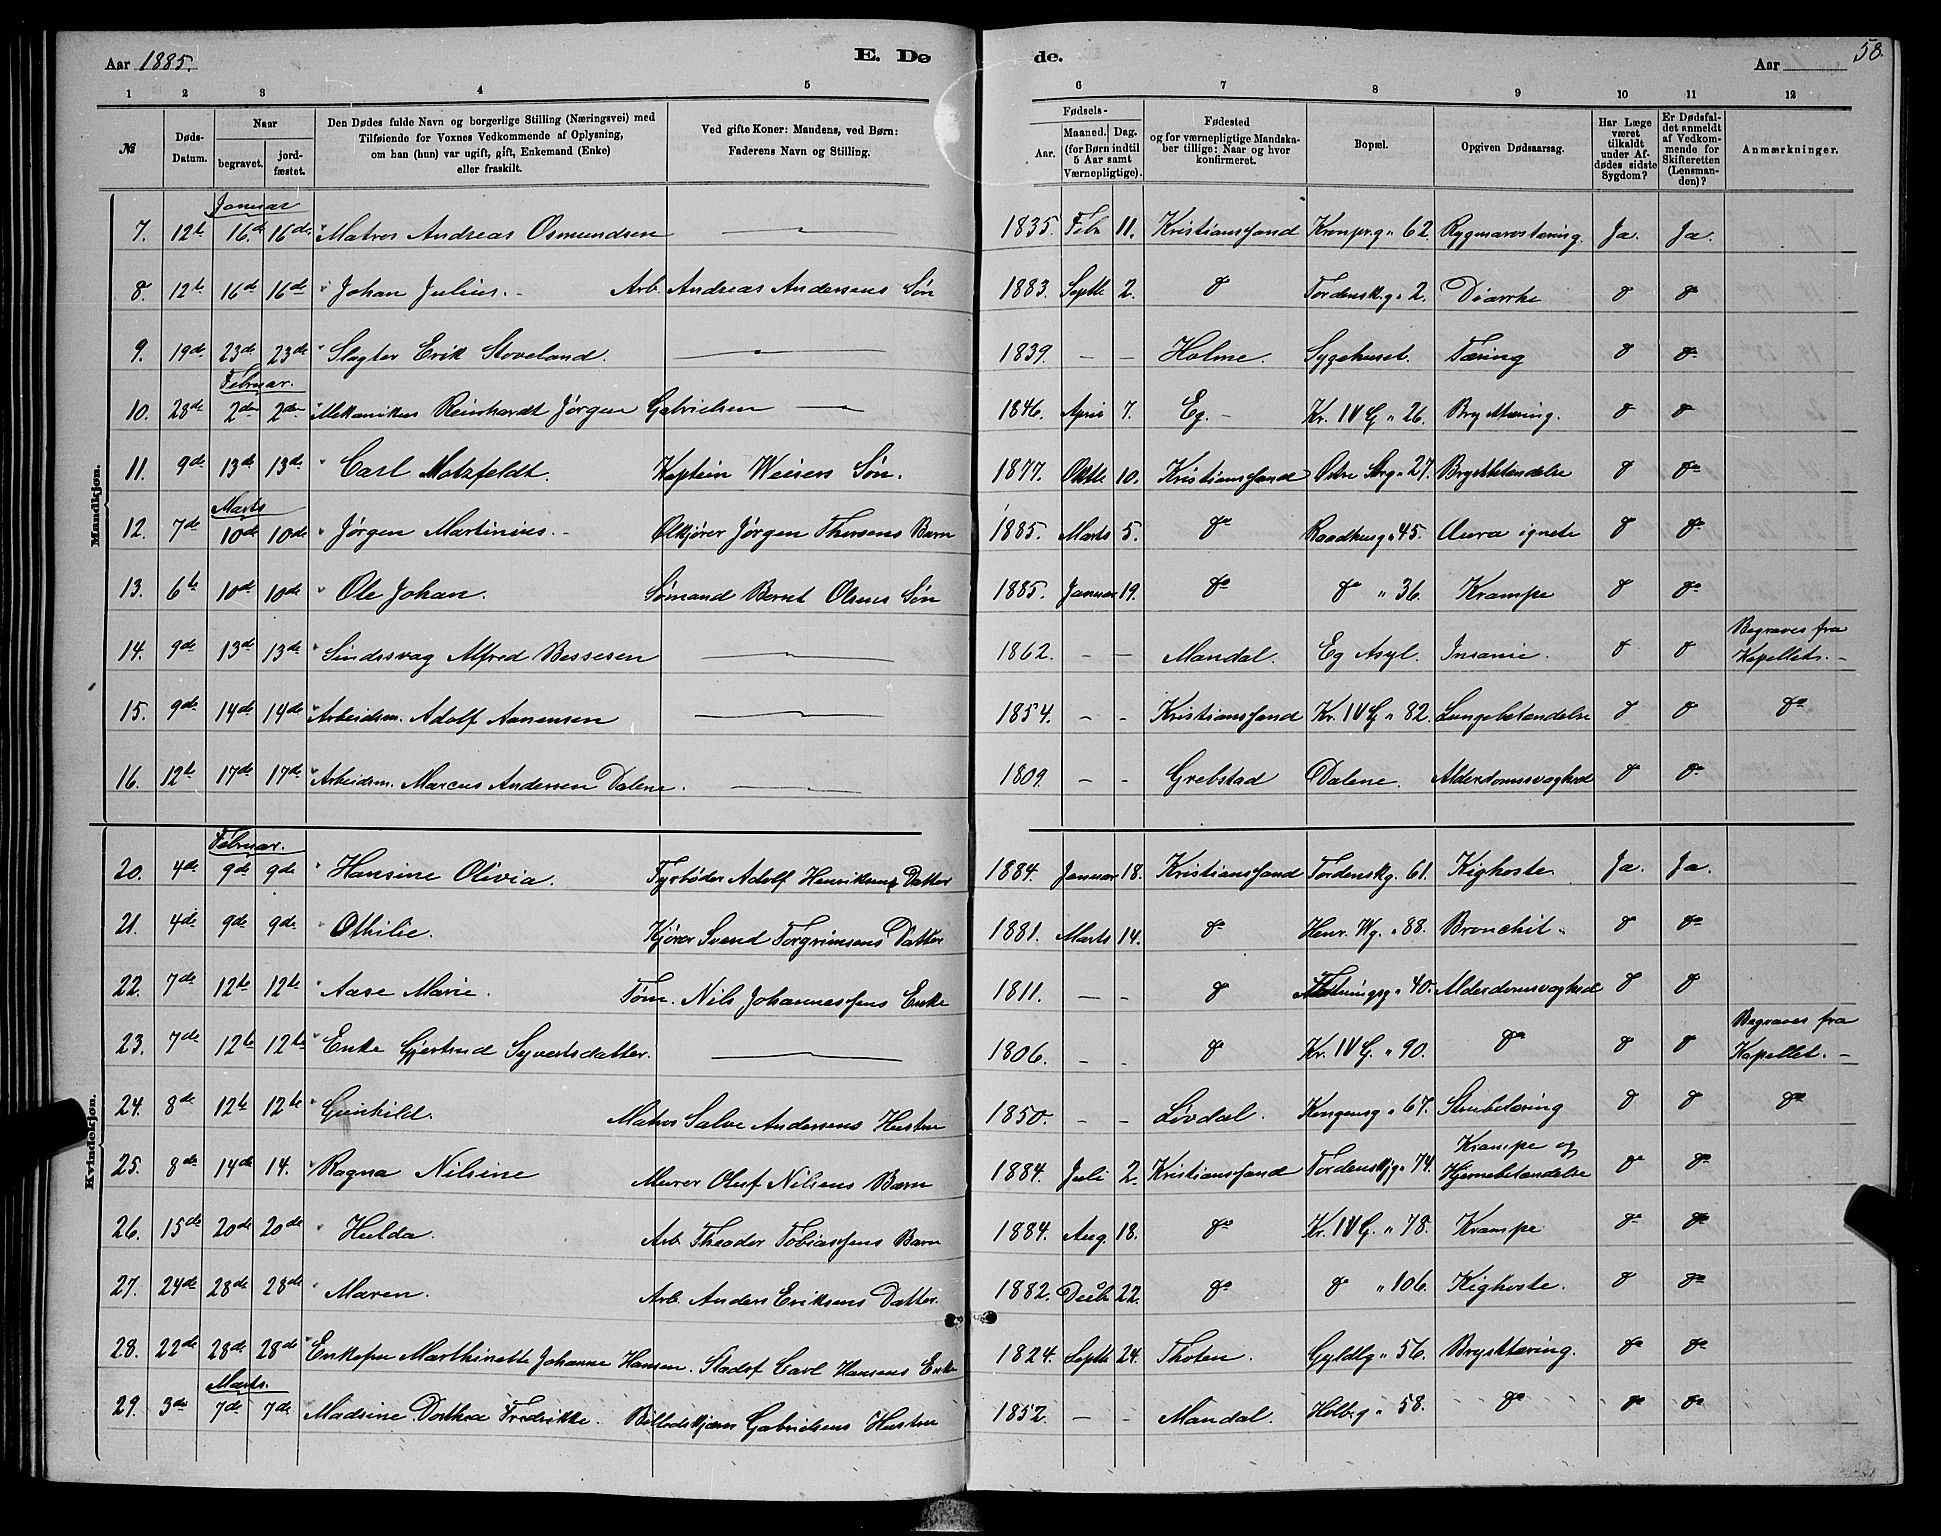 Aar 1885.
E. Dø
de.
Aar
58.
1 2 3 4 5 6 7 8 9 10 11 12
№
Døds-Datum.
Naar
begravet.
jord-fæstet.
Den Dødes fulde Navn og borgerlige Stilling (Næringsvei) med
Tilføiende for Voxnes Vedkommende af Oplysning,
om han (hun) var ugift, gift, Enkemand (Enke)
eller fraskilt.
Ved gifte Koner: Mandens, ved Børn:
Faderens Navn og Stilling.
Fødsels-
Aar.
Maaned. Dag.
(for Børn indtil
5 Aar samt
Værnepligtige).
Fødested
og for værnepligtige Mandska-
ber tillige: Naar og hvor
konfirmeret.
Bopæl.
Opgiven Dødsaarsag.
Har Læge
været
tilkaldt
under Af-
dødes sidste
Sygdom?
Er Dødsfal-
det anmeldt
af Vedkom-
mende for
Skifteretten
(Lensman-
den)?
Anmærkninger.
Mandkjøn.
Januar
7. 12te 16de 16de Matros Andreas Osmundsen — 1835. Febr 11. Kristianssand Kronpr.g. 62. Rygmarvstæring. Ja. Ja.
8. 12te 16de 16de Johan Julius. Arb. Andreas Andersens Søn 1883. Septb 2. do Tordensk.g. 2. Diarrhe do do
9. 19de 23de 23de Slagter Erik Stoveland. — 1839. - - Holme. Sygehuset. Tæring do do
Februar.
10. 28de 2den 2den Mekaniker Reinhardt Jørgen Gabrielsen — 1846. April 7. Eg. Kr. IV G. " 26. Brysttæring. do do
11. 9de 13de 13de Carl Motzfeldt. Kaptein Weisers Søn. 1877. Oktb 10. Kristianssand Østre Str.g. " 27. Brystbetændelse do do
Marts
12. 7de 10de 10de Jørgen Martinius. Ølkjører Jørgen Thorsens Barn 1885. Marts 5. do Raadhusg. " 45. Aura ignete do do
13. 6te 10de 10de Ole Johan. Sømand Bernt Olsens Søn 1885. Januar 19. do do " 36. Krampe do do
14. 9de 13de 13de Sindssvag Alfred Bessesen — 1862. - - Mandal. Eg Asyl. Insanie. do do Begraves fra Kapellet.
15. 9de 14de 14de Arbeidsm. Adolf Aanensen — 1854. - - Kristianssand Kr. IV G. " 82. Lungebetændelse do do do
16. 12te 17de 17de Arbeidsm. Marcus Andersen Dalene. — 1809. - - Grebstad Dalene. Alderdomssvaghed do do
Kvindekjøn.
Februar.
20. 4de 9de 9de Hansine Olivia. Fyrbøder Adolf Henriksens Datter 1884. Januar 18. Kristianssand Tordenskg. 61. Kighoste Ja. Ja.
21. 4de 9de 9de Othilie. Kjører Svend Torgrimsens Datter 1881. Marts 14. do Henr. Wg. " 88. Bronchit do do
22. 7de 12te 12te Aase Marie. Tøm. Nils Johannessens Enke 1811. - - do " 40. Alderdomsvaghed do do
23. 7de 12te 12te Enke Gjertrud Syvertsdatter. — 1806. - - do Kr. IV G. " 90. do do do Begraves fra Kapellet.
24. 8de 12te 12te Gunhild. Matros Salve Andersens Hustru 1850. - - Løvdal. Kongensg " 67. Strubetæring do do do
25. 8de 14de 14. Ragna Nilsine Murer Oluf Nilsens Barn 1884. Juli 2. Kristianssand Tordenskjg. " 74. Krampe og Hjernebetændelse do do
26. 15de 20de 20de Hulda. Arb. Theodor Tobiassens Barn 1884. Aug. 18. do Kr. IV G. " 78. Krampe do do
27. 24de 28de 28de Maren. Arb. Anders Eriksens Datter. 1882. Decbr 22. do do " 106. Kighoste. do do
28. 22de 28de 28de Enkefru Marthinette Johanne Hansen. Stadsf Carl Hansens Enke 1824. Septb 24. Thoten. Gyldlg " 56. Brysttæring. do do
Marts.
29. 3die 7de 7de Madsine Dorthea Fredrikke. Gabrielsens Hustru 1852. - - Mandal. Holbg " 58. do do do